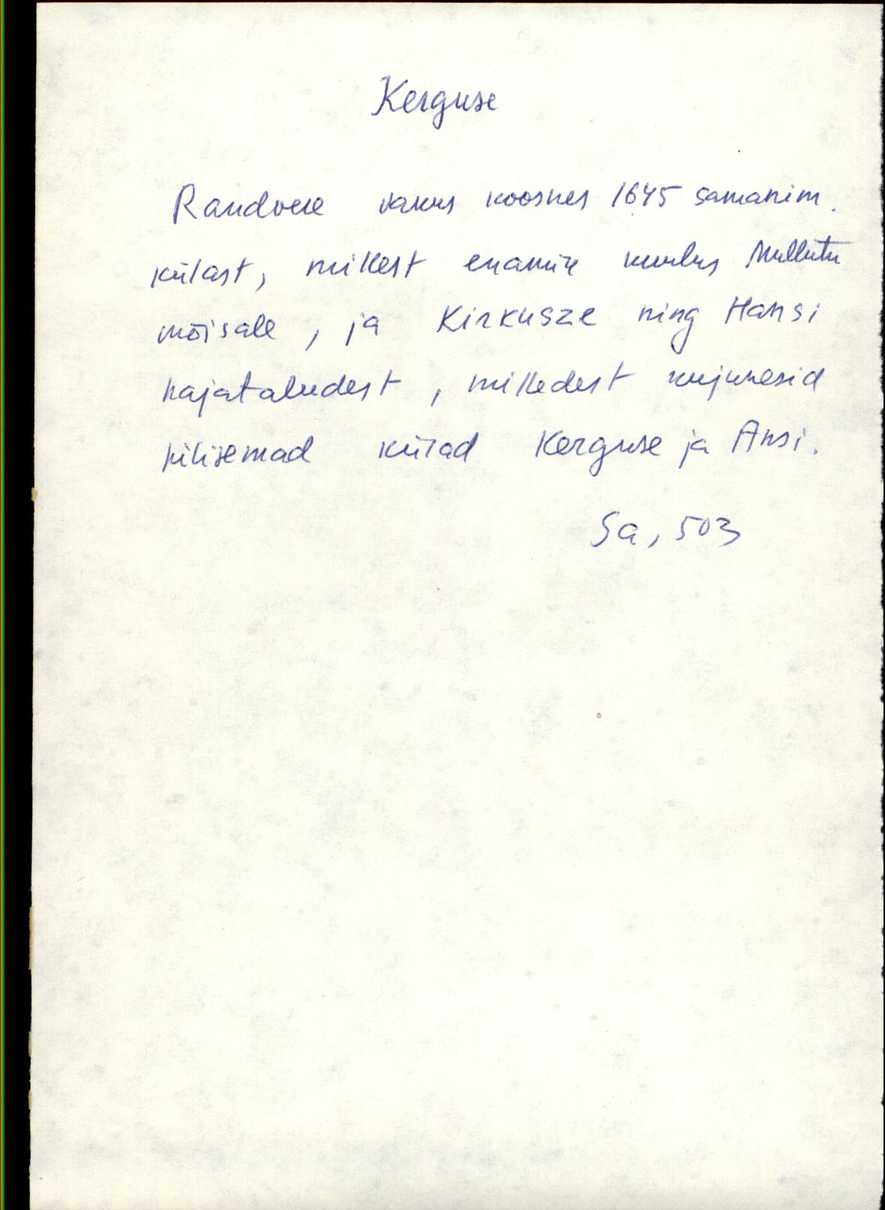 Kerguse
Randvere vakus koosnes 1645 samanim.
külast, millest enamik kuulus Mullutu
mõisale, ja Kirkusze ning Hansi
hajataludest, milledest kujunesid
hilisemad külad Kerguse ja Ansi.
Sa, 503